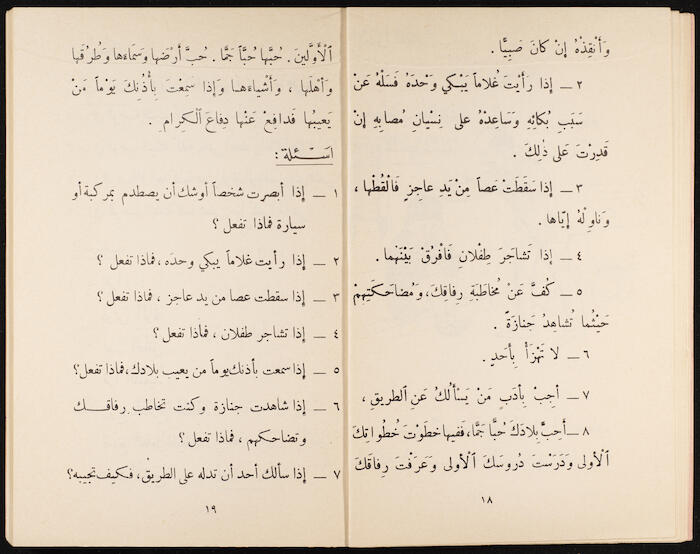 وَأَنْقِذْهُ إِنْ كانَ صَبِيًّا .
٢ ــ إذا رَأَيْتَ غُلاماً يَبْكي وَحْدَهُ فَسَلْهُ عَنْ
سَبَبِ بُكائِهِ وَسَاعِدْهُ على نِسْيانِ مُصابِهِ إِنْ
قَدِرْتَ عَلى ذٰلِكَ .
٣ ــ إذا سَقَطَتْ عَصاً مِنْ يَدِ عاجِزٍ فَالْقُطْها ،
وَناوِلْهُ إيّاها .
٤ ــ إذا تَشاجَرَ طِفْلانِ فَافْرُقْ بَيْنَهُما .
٥ ــ كُفَّ عَنْ مُخاطَبَةِ رِفاقِكَ، وَمُضاحَكَتِهِمْ
حَيْثُما تُشاهِدُ جَنازَةً .
٦ ــ لا تَهْزَأْ بِأَحَدٍ .
٧ ــ أَجِبْ بِأَدَبٍ مَنْ يَسْأَلُكَ عَنِ الطَّريقِ ،
٨ ــ أَحِبَّ بِلادَكَ حُبًّا جَمًّا، فَفيها خَطَوْتَ خُطُواتِكَ
الْأولى وَدَرَسْتَ دُروسَكَ الْأولى وَعَرَفْتَ رِفاقَكَ
١٨
الْأَوَّلينَ . حُبَّها حُبًّا جَمًّا . حُبَّ أَرْضَها وَسَماءَها وَطُرُقَها
وَأَهْلَها ، وَأَشْياءَها وَإذا سَمِعْتَ بِأُذُنِكَ يَوْماً مَنْ
يَعيبُها فَدافِعْ عَنْها دِفاعَ الْكِرامِ .
اسئلة :
١ ــ إذا أبصرت شخصاً أوشك أن يصطدم بمركبة أو
سيارة فماذا تفعل ؟
٢ ــ إذا رأيت غلاماً يبكي وحدَه ، فماذا تفعل ؟
٣ ــ إذا سقطت عصا من يد عاجز ، فماذا تفعل ؟
٤ ــ إذا تشاجر طفلان ، فماذا تفعل ؟
٥ ــ إذا سمعت بأذنك يوماً من يعيب بلادك، فماذا تفعل ؟
٦ ــ إذا شاهدت جنازة وكنت تخاطب رفاقك
وتضاحكهم ، فماذا تفعل ؟
٧ ــ إذا سألك أحد أن تدله على الطريق، فكيف تجيبه؟
١٩